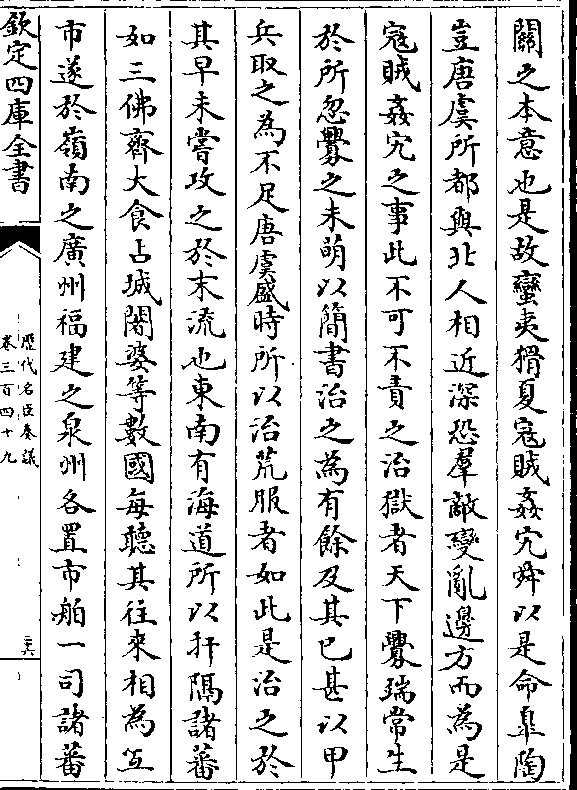 闗之本意也是故蠻夷猾夏寇賊姦宄舜以是命臯陶
豈唐虞所都與北人相近深恐羣敵變亂邊方而為是
寇賊姦宄之事此不可不責之治獄者天下釁端常生
於所忽釁之未萌以簡書治之為有餘及其已甚以甲
兵取之為不足唐虞盛時所以治荒服者如此是治之於
其早未嘗攻之於末流也東南有海道所以扞隔諸蕃
如三佛齊大食占城闍婆等數國每聽其往來相為互
市遂於嶺南之廣州福建之泉州各置市舶一司諸蕃
欽定四庫全書
歷代名臣奏議
卷三百四十九
二六